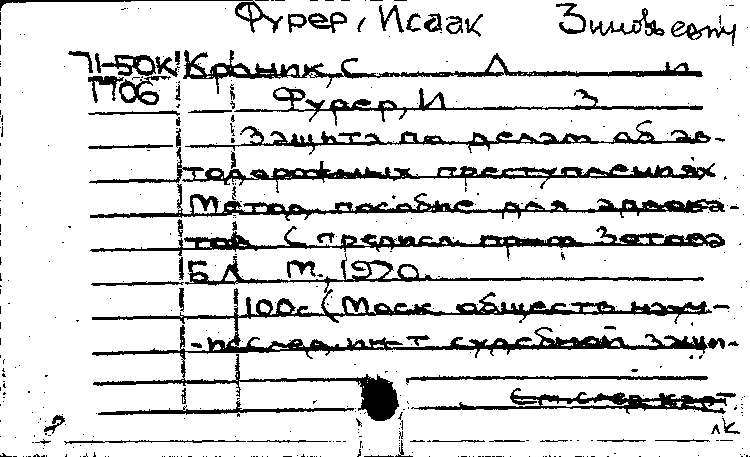 Фурер, Исаак Зиновьевич
71-50К Краник, С Л и
1706 Фурер, И З
Защита по делам об ав-
тодорожных преступлениях.
Метод пособие для адвока-
тов С предисл. проф Зотова
Б Л М., 1970.
100с (Моск обществ науч-
-исслед. ин-т судебной защи-
См. след карт